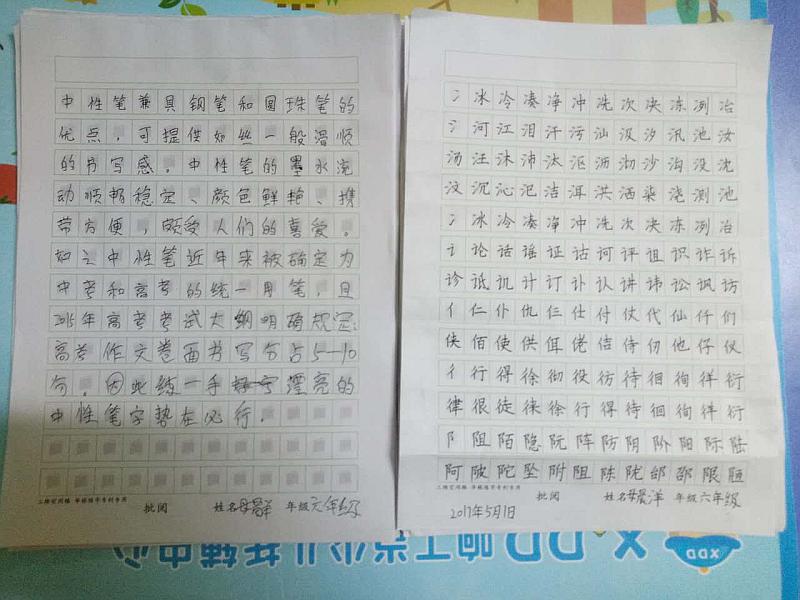 中性笔兼具钢笔和圆珠笔的
优点,可提供如丝一般滑顺
的书写感,中性笔的墨水流
动顺畅稳定、颜色鲜艳、携
带方便,颇受人们的喜爱。
如之中性笔近年来被确定为
中考和高考的统一用笔,且
2015年高考考试大纲明确规定:
高考作文卷面书写分占5—10
分,因此练一手漂亮的
中性笔字势在必行.
三维空间格 华杨练字专利专用
批阅 姓名 年级六年级
冫冰冷凑净冲冼次决冻冽冶
氵河江泪汗污汕汲汐汛池汝
汤汪沐沛汰沤沥沏沙沟没沈
汶沉沁汜洁洱洪洒染浇测池
冫冰冷凑净冲冼次决冻冽冶
讠论话谣证诂诃评诅识诈诉
诊诋讥计订讣认讲讳讼讽访
亻仁仆仇仨仕付仗代仙仟们
侠佰使供佴佬佶侍仂他仔仪
彳行得徐彻役彷待徊徇徉衍
律很徒徕徐行得待徊徇徉衍
阝阻陌隐阮阵防阴阶阳际陆
阿陂陀坠附阻陈陇邰邵限
三维空间格 华杨练字专利专用
批阅 姓名 晨洋 年级六年级
2017年5月1日
XDD